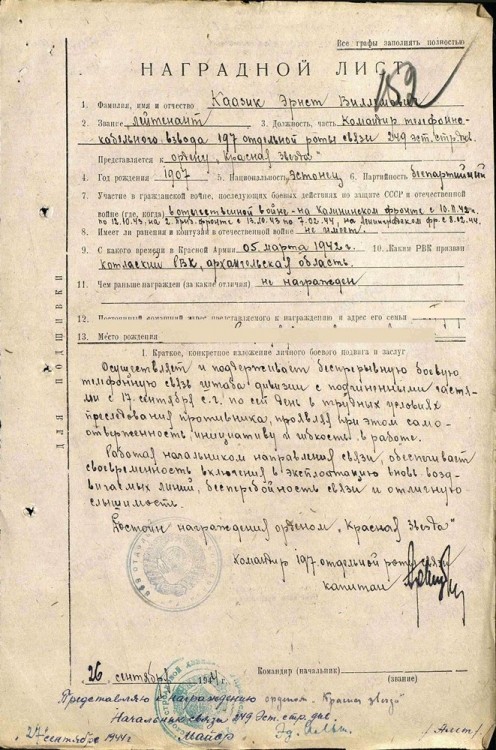 Все графы заполнять полностью
152
НАГРАДНОЙ ЛИСТ
1. Фамилия, имя и отчество Каазик Эрнст Виллемович
2. Звание лейтенант 3. Должность, часть Командир телефонно-
кабельного взвода 197 отдельной роты связи 249 эст. стр. див.
Представляется к ордену „Красная звезда"
4. Год рождения 1907 5. Национальность эстонец 6. Партийность беспартийный
7. Участие в гражданской войне, последующих боевых действиях по защите СССР и отечественной
войне (где, когда) в отечественной войне - на Калининском фронте с 10.11.42г.
по 12.10.43 на 2 Приб. фронте с 13.10.43 по 7.02.44, на Ленинградском фр. с 8.02.44.
8. Имеет ли ранения и контузии в отечественной войне не имеет.
9. С какого времени в Красной Армии 05 марта 1942 г. 10. Каким РВК призван
Котласский РВК, Архангельская область.
11. Чем раньше награжден (за какие отличия) не награжден
12. Постоянный домашний адрес представляемого к награждению и адрес его семьи
13. Место рождения
I. Краткое, конкретное изложение личного боевого подвига и заслуг
Осуществляет и поддерживает беспрерывную боевую
телефонную связь штаба дивизии с подчиненными частя-
ми с 17. сентября с.г. по сей день в трудных условиях
преследования противника, проявляя при этом само-
отверженность, инициативу и гибкость в работе.
Работая начальником направления связи, обеспечивает
своевременность включения в эксплоатацию вновь воз-
двигаемых линий, бесперебойность связи и отличную
слышимость.
Достоин награждения орденом „Красная звезда"
Командир 197 отдельной роты связи
капитан
26 сентября 1944 г.
Командир (начальник)
(звание)
Представляю к награждению орденом „Красная звезда"
Начальник связи 249 Эст. стр. див.
27 сентября 1944 г. майор
ДЛЯ ПОДШИВКИ